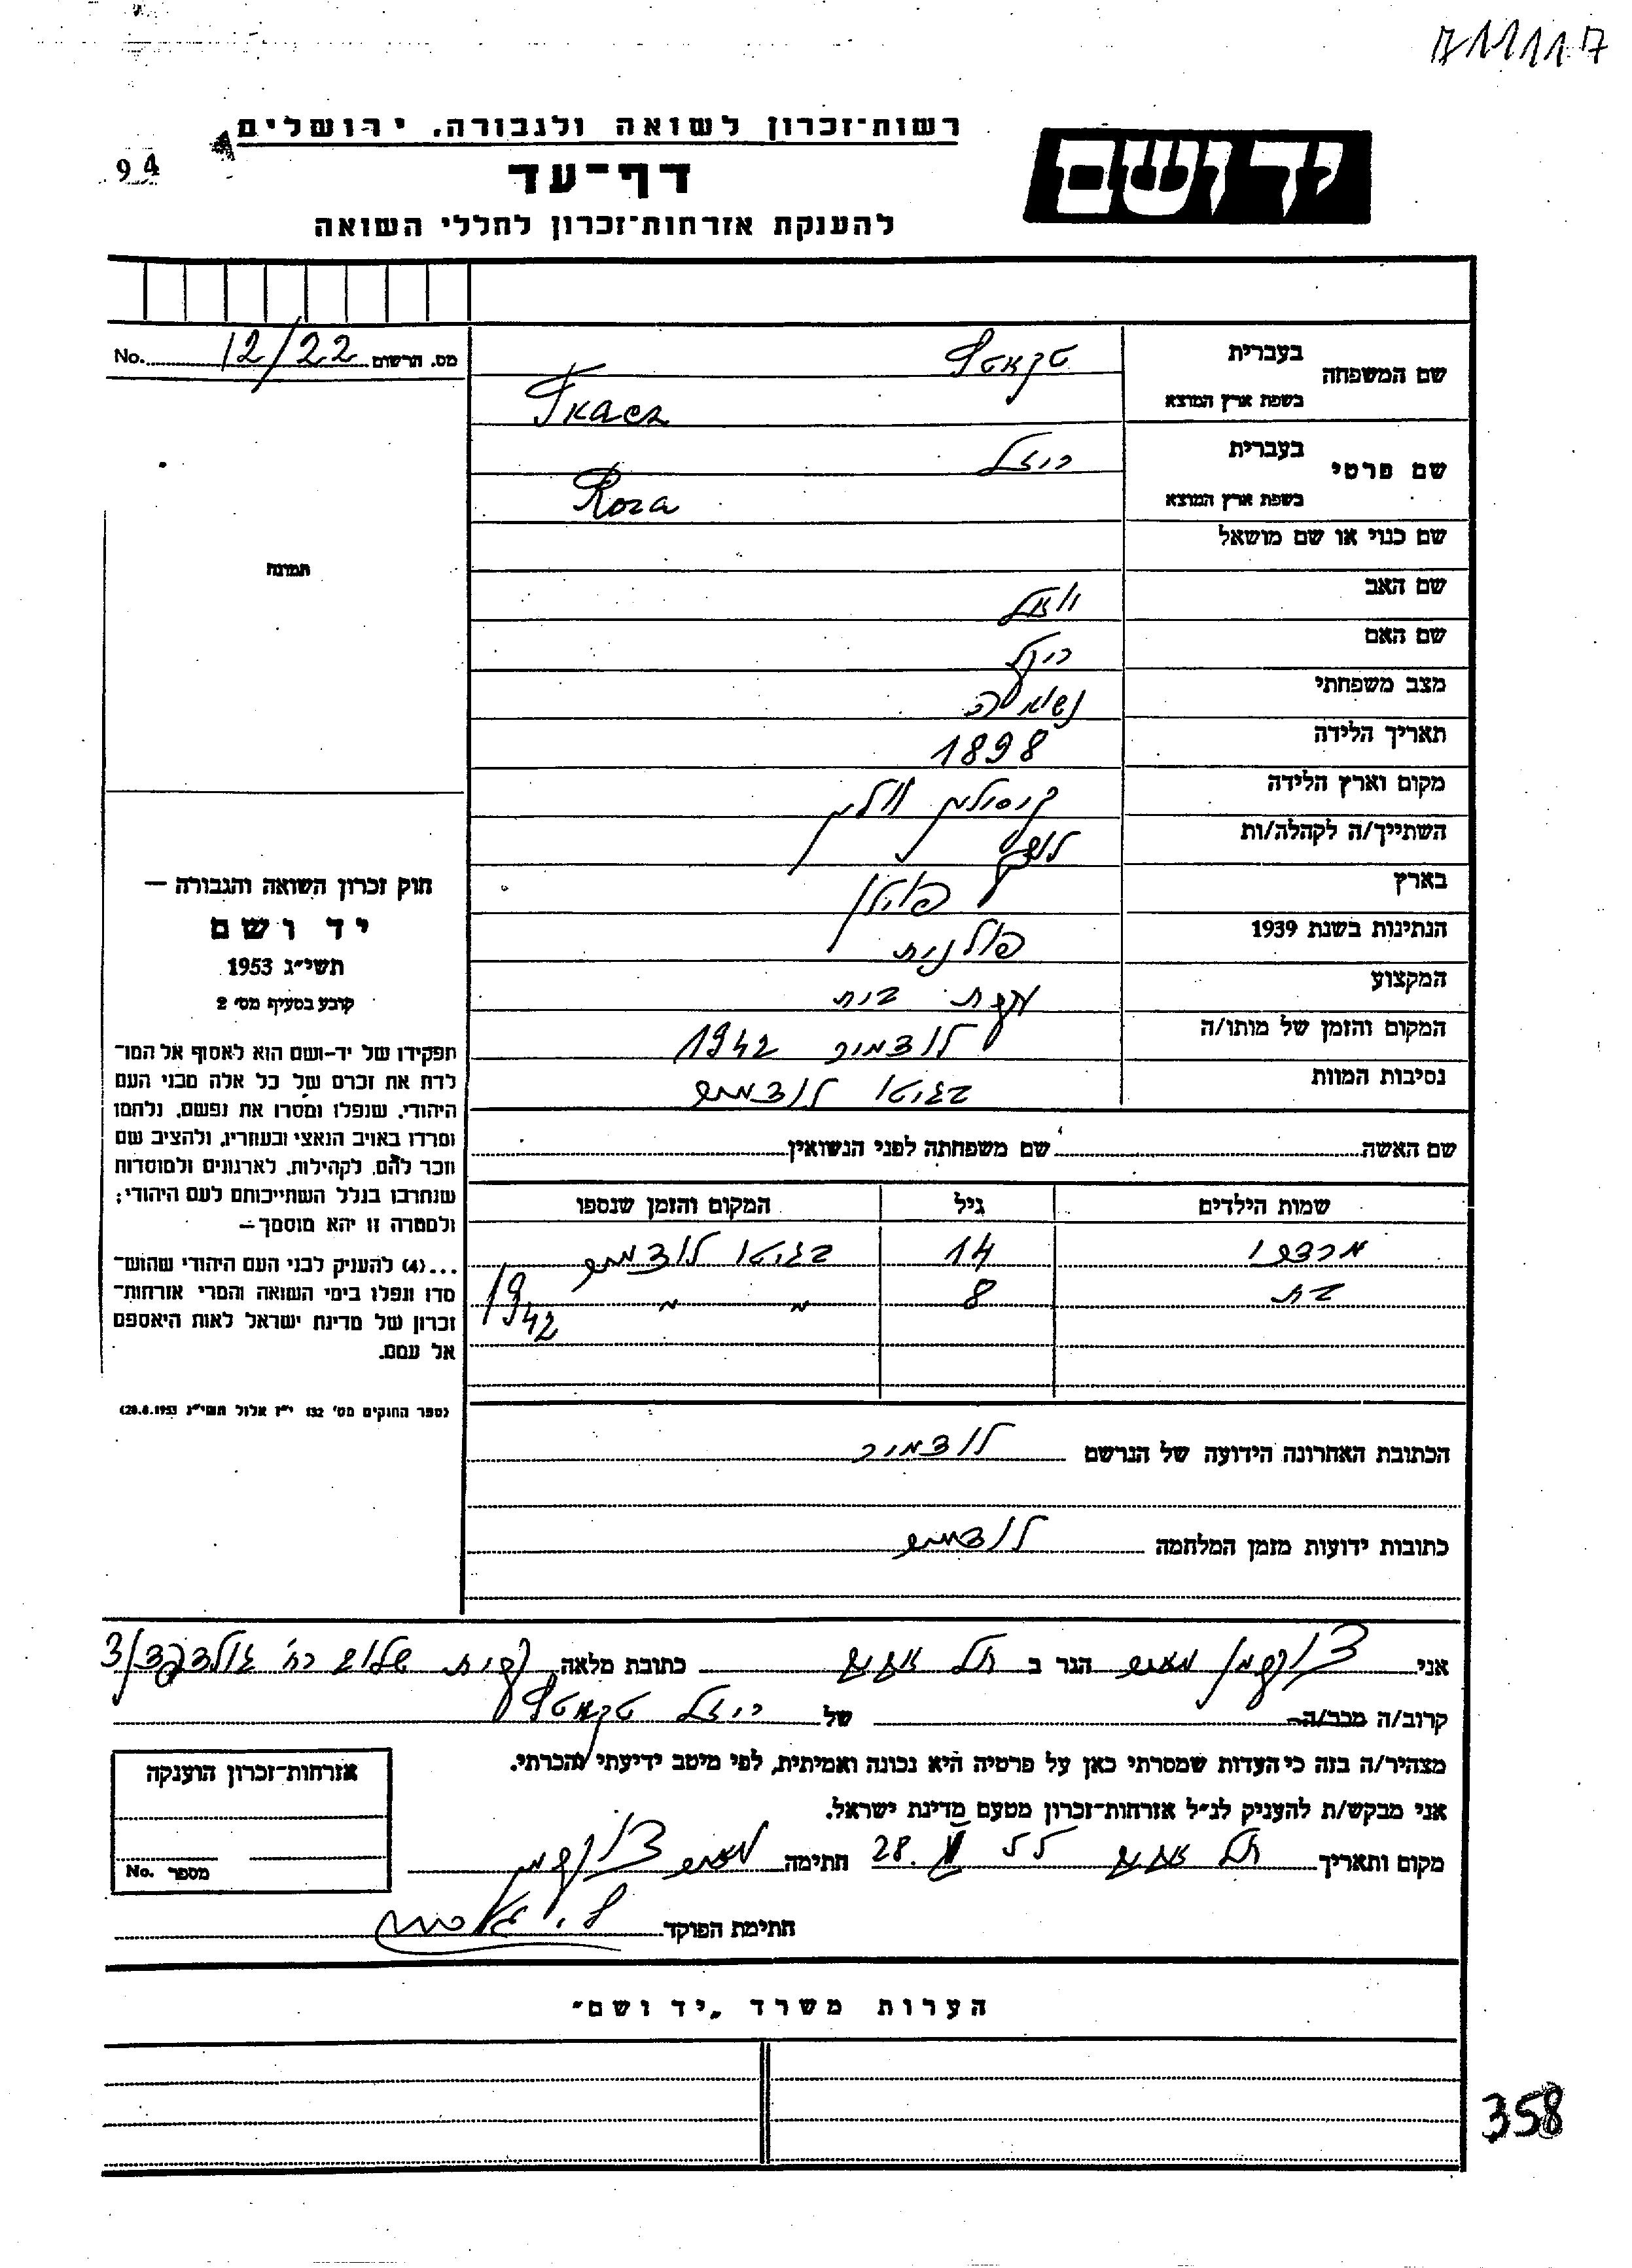 711117
רשות־זכרון לשואה ולגבורה, ירושלים
94
יד ושם
דף־עד
להענקת אזרחות־זכרון לחללי השואה
מס. הרשום 12/22 No.
שם המשפחה
בעברית
טקאטש
בשפת ארץ המוצא
Tkacz
שם פרטי
בעברית
רוזל
בשפת ארץ המוצא
Roza
שם כנוי או שם מושאל
תמונה
שם האב
שם האם
מצב משפחתי נשואה
תאריך הלידה 1898
מקום וארץ הלידה
השתייך/ה לקהלה/ות
בארץ פולין
הנתינות בשנת 1939 פולנית
המקצוע עקרת בית
המקום והזמן של מותו/ה לודמיר 1942
נסיבות המוות בגיטו לודמיר
שם האשה שם משפחתה לפני הנשואין
שמות הילדים גיל המקום והזמן שנספו
מרדכי 14 בגיטו לודמיר
בת 8 " " 1942
חוק זכרון השואה והגבורה —
יד ושם
תשי״ג 1953
קובע בסעיף מס׳ 2
תפקידו של יד־ושם הוא לאסוף אל המו־
לדת את זכרם של כל אלה מבני העם
היהודי, שנפלו ומסרו את נפשם, נלחמו
ומרדו באויב הנאצי ובעוזריו, ולהציב שם
וזכר להם, לקהילות, לארגונים ולמוסדות
שנחרבו בגלל השתייכותם לעם היהודי;
ולמטרה זו יהא מוסמך —
...(4) להעניק לבני העם היהודי שהוש־
מדו ונפלו בימי השואה והמרי אזרחות־
זכרון של מדינת ישראל לאות היאספם
אל עמם.
(ספר החוקים מס׳ 132 י״ז אלול תשי״ג 28.8.1953)
הכתובת האחרונה הידועה של הנרשם לודמיר
כתובות ידועות מזמן המלחמה לודמיר
אני צוקרמן הגר ב תל אביב כתובת מלאה קרית שלום רח׳ 3/
קרוב/ה מכר/ה של רוזל טקאטש
מצהיר/ה בזה כי העדות שמסרתי כאן על פרטיה היא נכונה ואמיתית, לפי מיטב ידיעתי והכרתי.
אני מבקש/ת להעניק לנ״ל אזרחות־זכרון מטעם מדינת ישראל.
מקום ותאריך תל אביב 28. 55 חתימה צוקרמן
חתימת הפוקד
אזרחות־זכרון הוענקה
מספר No.
הערות משרד „יד ושם״
358